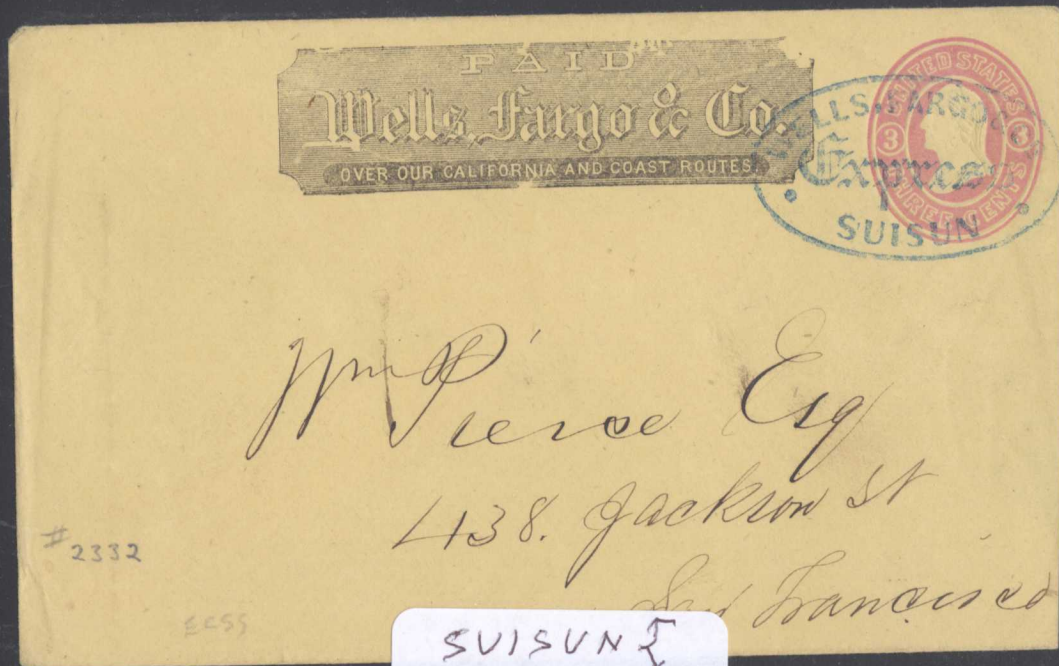 PAID
Wells, Fargo & Co.
OVER OUR CALIFORNIA AND COAST ROUTES.
UNITED STATES
3 3
THREE CENTS
WELLS, FARGO & CO'S
Express
SUISUN
Wm Pierce Esq
438. Jackson St
San Francisco
#2332
SUISUN